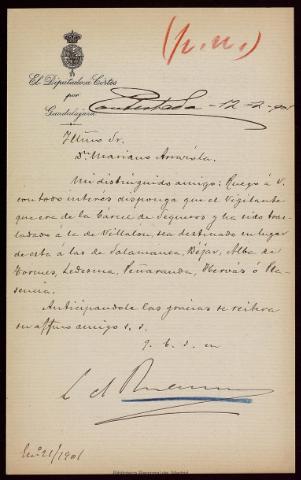 (p. n.)
El Diputado a Cortes
por
Guadalajara.
Contestada - 12-2-901
Ilmo Sr.
Dn Mariano Arrazola.
Mi distinguido amigo: Ruego á V.
con todo interes disponga que el Vigilante
que era de la Cárcel de Sequeros y ha sido tras-
ladado á la de Villalón, sea destinado en lugar
de esta á las de Salamanca, Béjar, Alba de
Tormes, Ledesma, Peñaranda, Hervás ó Pla-
sencia.
Anticipandole las gracias se reitera
su affmo amigo s. s.
q. b. s. m
Eno 21/1901
Biblioteca Regional de Madrid